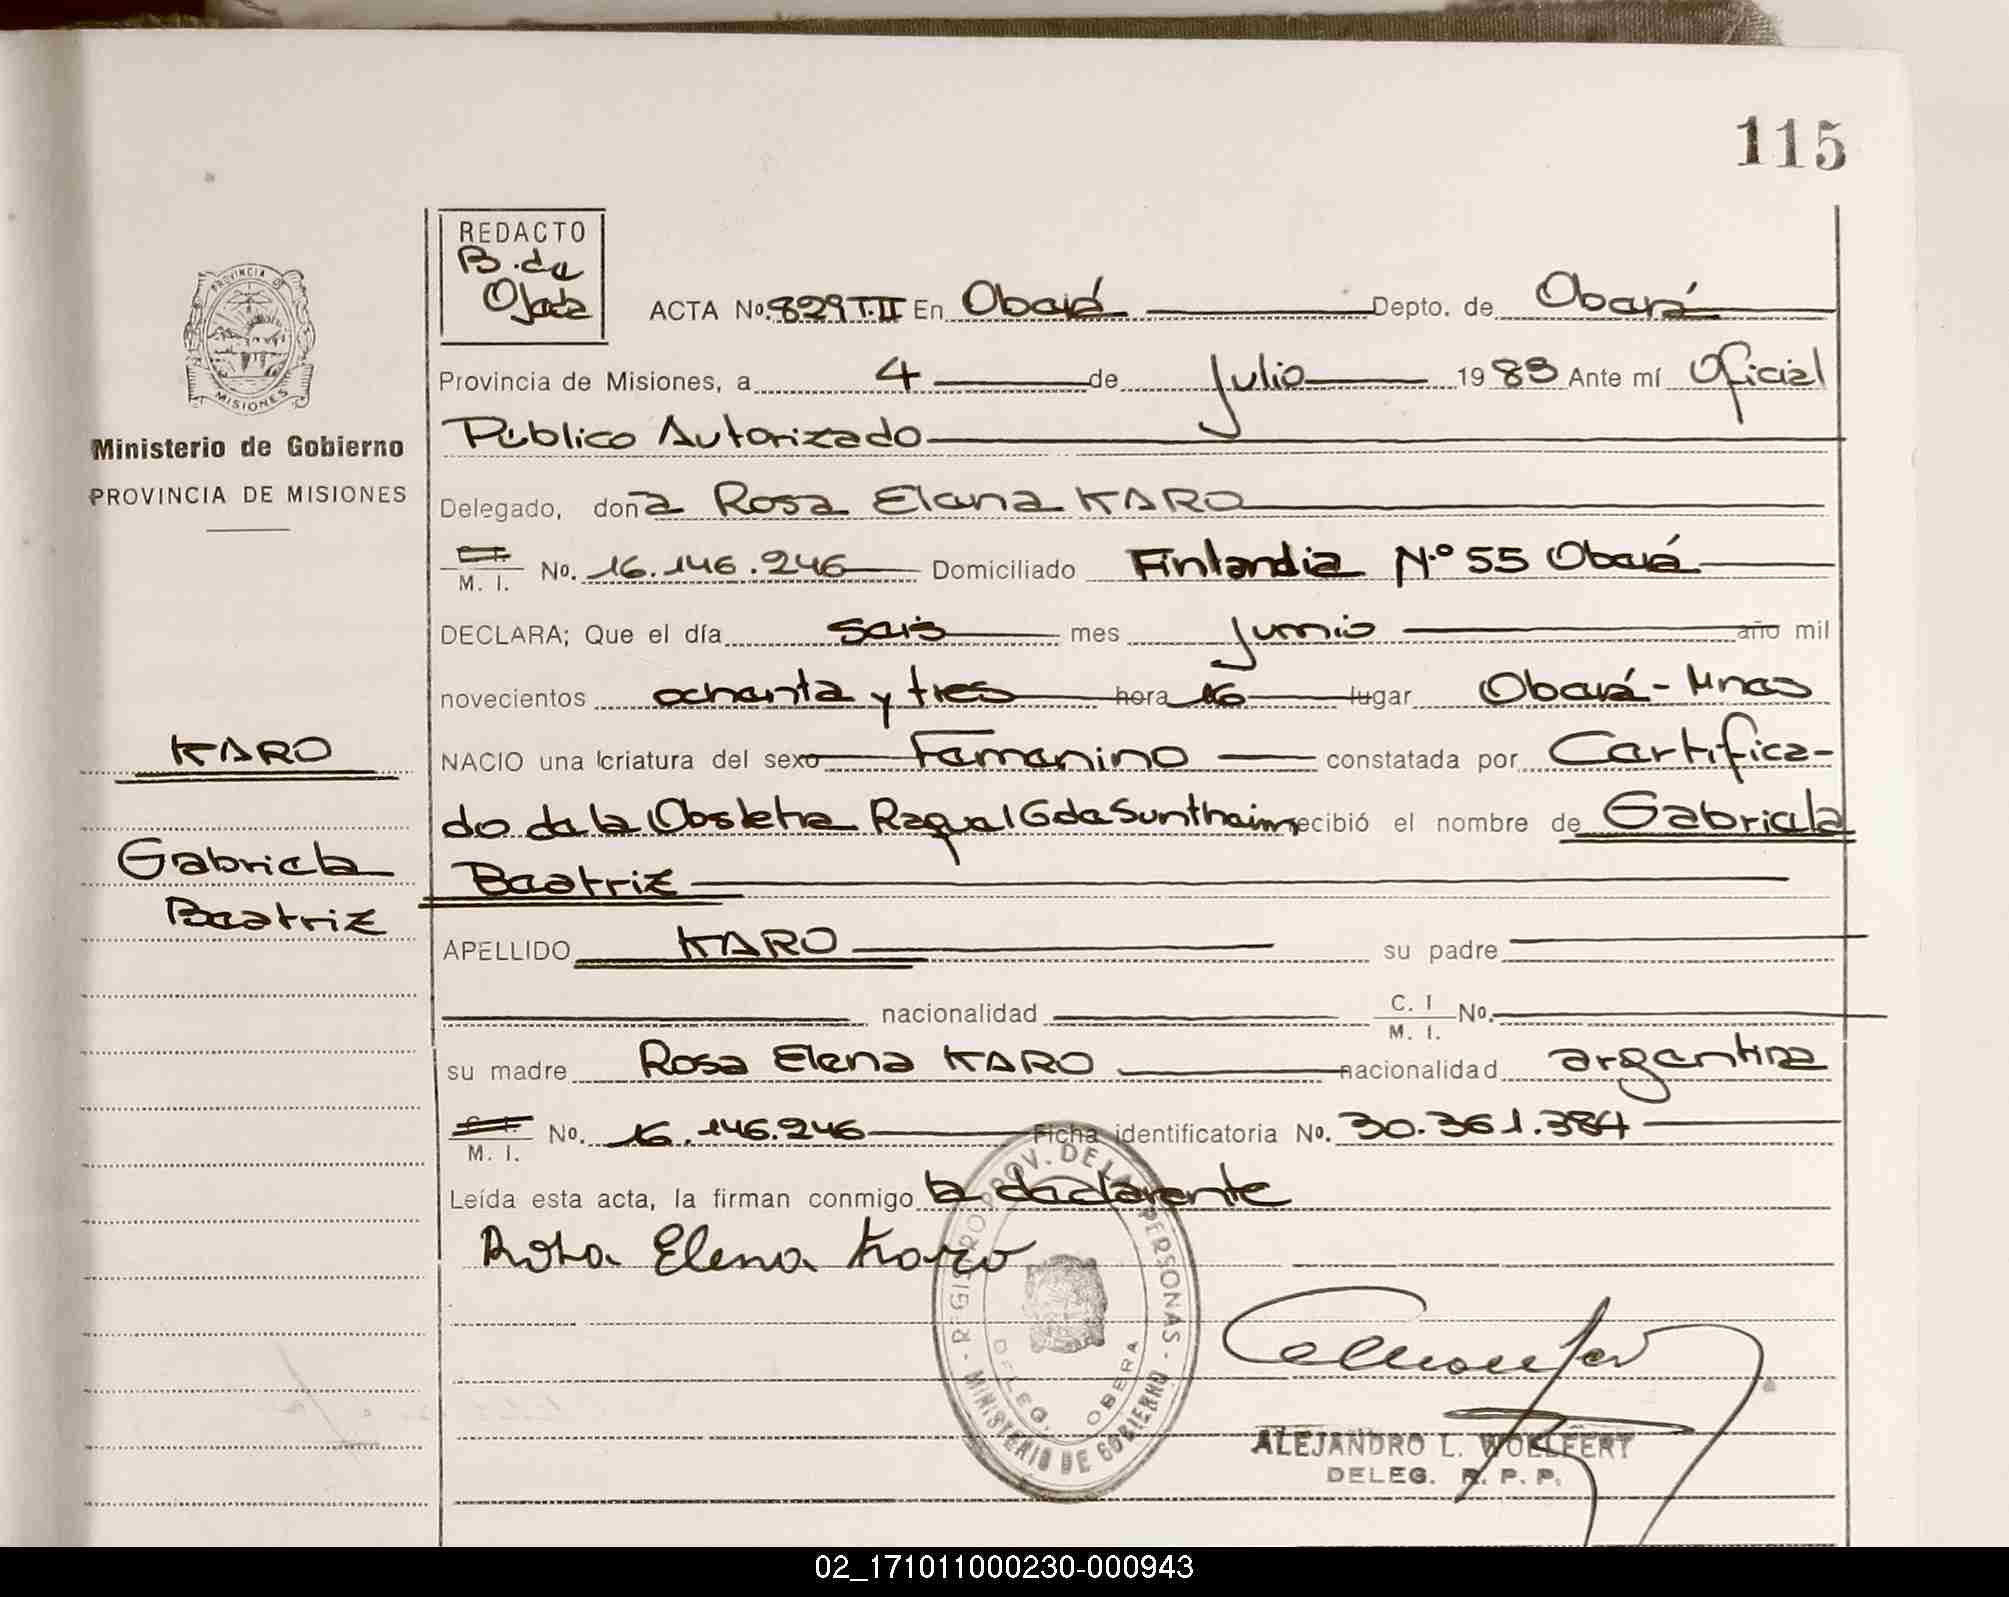 115
REDACTO
B. de
Ojeda
ACTA No. 829 T. II En Oberá Depto. de Oberá
PROVINCIA DE
MISIONES
Provincia de Misiones, a 4 de Julio 1983 Ante mí Oficial
Ministerio de Gobierno
Público Autorizado
PROVINCIA DE MISIONES
Delegado, doña Rosa Elena KARO
C. I.
M. I. No. 16.146.246 Domiciliado Finlandia N.º 55 Oberá
DECLARA; Que el día seis mes Junio año mil
novecientos ochenta y tres hora 16 lugar Oberá - Mnes
KARO
NACIO una criatura del sexo Femenino constatada por Certifica-
do de la Obstetra Raquel G de Suntheim recibió el nombre de Gabriela
Gabriela
Beatriz
Beatriz
APELLIDO KARO su padre
nacionalidad C. I
M. I. No.
su madre Rosa Elena KARO nacionalidad argentina
C. I.
M. I. No. 16.146.246 Ficha identificatoria No. 30.361.384
Leída esta acta, la firman conmigo la declarente
Rosa Elena Karo
REGISTRO PROV. DE LAS PERSONAS - MINISTERIO DE GOBIERNO -
DELEG. OBERA
ALEJANDRO L. WOLFFERT
DELEG. R. P. P.
02_171011000230-000943